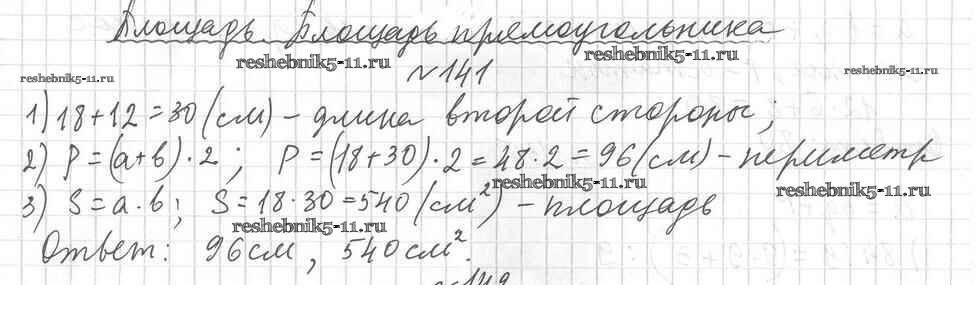 Площадь. Площадь прямоугольника
reshebnik5-11.ru reshebnik5-11.ru
reshebnik5-11.ru №141 reshebnik5-11.ru
1) 18+12=30 (см) - длина второй стороны;
2) P=(a+b)·2; P=(18+30)·2=48·2=96 (см) - периметр
reshebnik5-11.ru reshebnik5-11.ru
3) S=a·b; S=18·30=540 (см²) - площадь
reshebnik5-11.ru
Ответ: 96см, 540см².